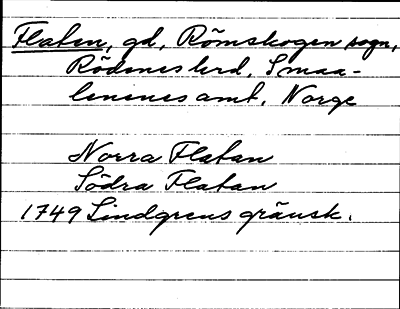 Flaten, gd, Römskogen sogn,
Rödenes hrd, Smaa-
lenenes amt, Norge
Norra Flatan
Södra Flatan
1749 Lindgrens gränsk.